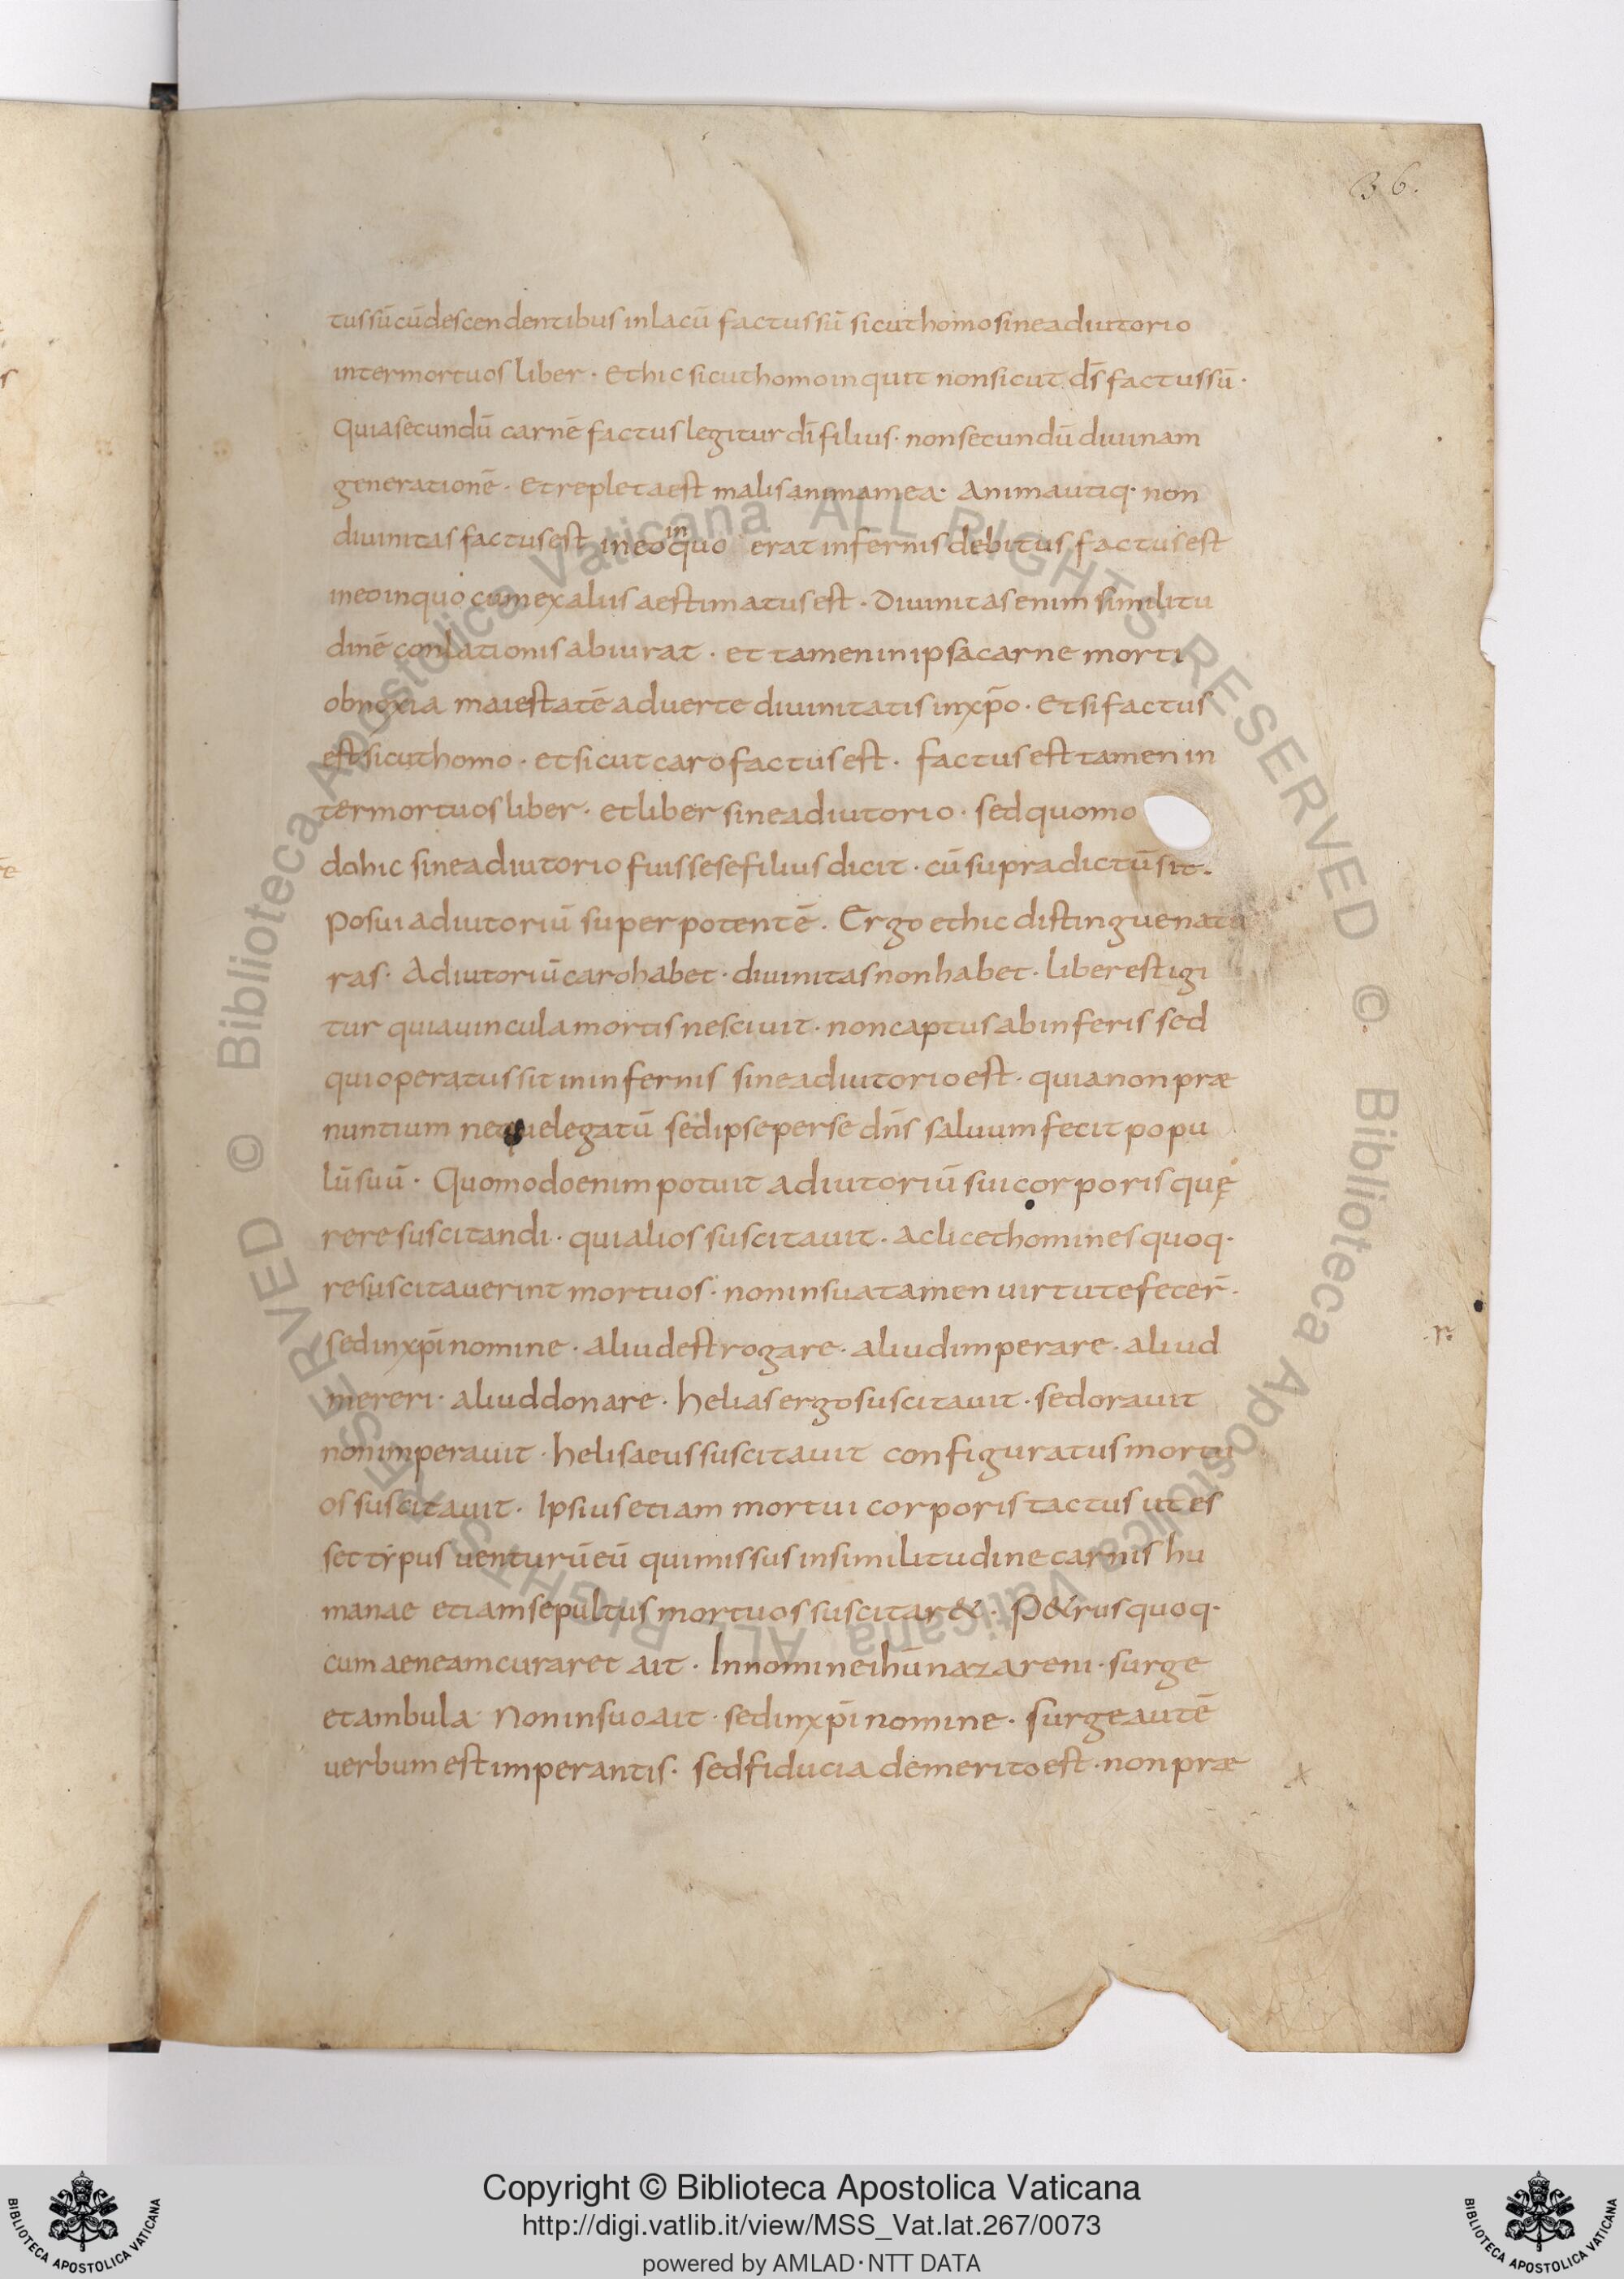 36.
tus sū cū descendentibus in lacū factus sū sicut homo sine adiutorio
inter mortuos liber · et hic sicut homo inquit non sicut d̄s factus sū ·
Quia secundū carnē factus legitur dī filius · non secundū diuinam
generationē · et repleta est malis anima mea · Anima utiq· non
diuinitas factus est in eo in quo erat infernis debitus factus est
in eo in quo cum ex aliis aestimatus est · Diuinitas enim similitu
dinē conlationis abiurat · et tamen in ipsa carne morti
obnoxia maiestatē aduerte diuinitatis in xp̄o · Et si factus
est sicut homo · et sicut caro factus est · factus est tamen in
ter mortuos liber · et liber sine adiutorio · sed quomo
do hic sine adiutorio fuisse se filius dicit · cū supra dictū sit ·
Posui adiutoriū super potentē · Ergo et hic distingue natu
ras · Adiutoriū caro habet · diuinitas non habet · liber est igi
tur quia uincula mortis nesciuit · non captus ab inferis sed
qui operatus sit in infernis sine adiutorio est · quia non præ
nuntium neque legatū sed ipse per se dn̄s saluum fecit popu
lū suū · Quomodo enim potuit adiutoriū sui corporis quę
rere suscitandi · qui alios suscitauit · ac licet homines quoq·
resuscitauerint mortuos · non in sua tamen uirtute fecer̄ ·
sed in xp̄i nomine · aliud est rogare · aliud imperare · aliud
mereri · aliud donare · helias ergo suscitauit · sed orauit
non imperauit · helisaeus suscitauit configuratus mortu
os suscitauit · Ipsius etiam mortui corporis tactus ut es
set typus venturū eū qui missus in similitudine carnis hu
manae etiam sepultus mortuos suscitar& · P&rus quoq·
cum aeneam curaret ait · In nomine ih̄u nazareni · surge
et ambula · Non in suo ait · sed in xp̄i nomine · surge autē
uerbum est imperantis · sed fiducia de merito est · non præ
Copyright © Biblioteca Apostolica Vaticana
http://digi.vatlib.it/view/MSS_Vat.lat.267/0073
powered by AMLAD · NTT DATA
BIBLIOTECA APOSTOLICA VATICANA
BIBLIOTECA APOSTOLICA VATICANA
© Biblioteca Apostolica Vaticana ALL RIGHTS RESERVED
© Biblioteca Apostolica Vaticana ALL RIGHTS RESERVED